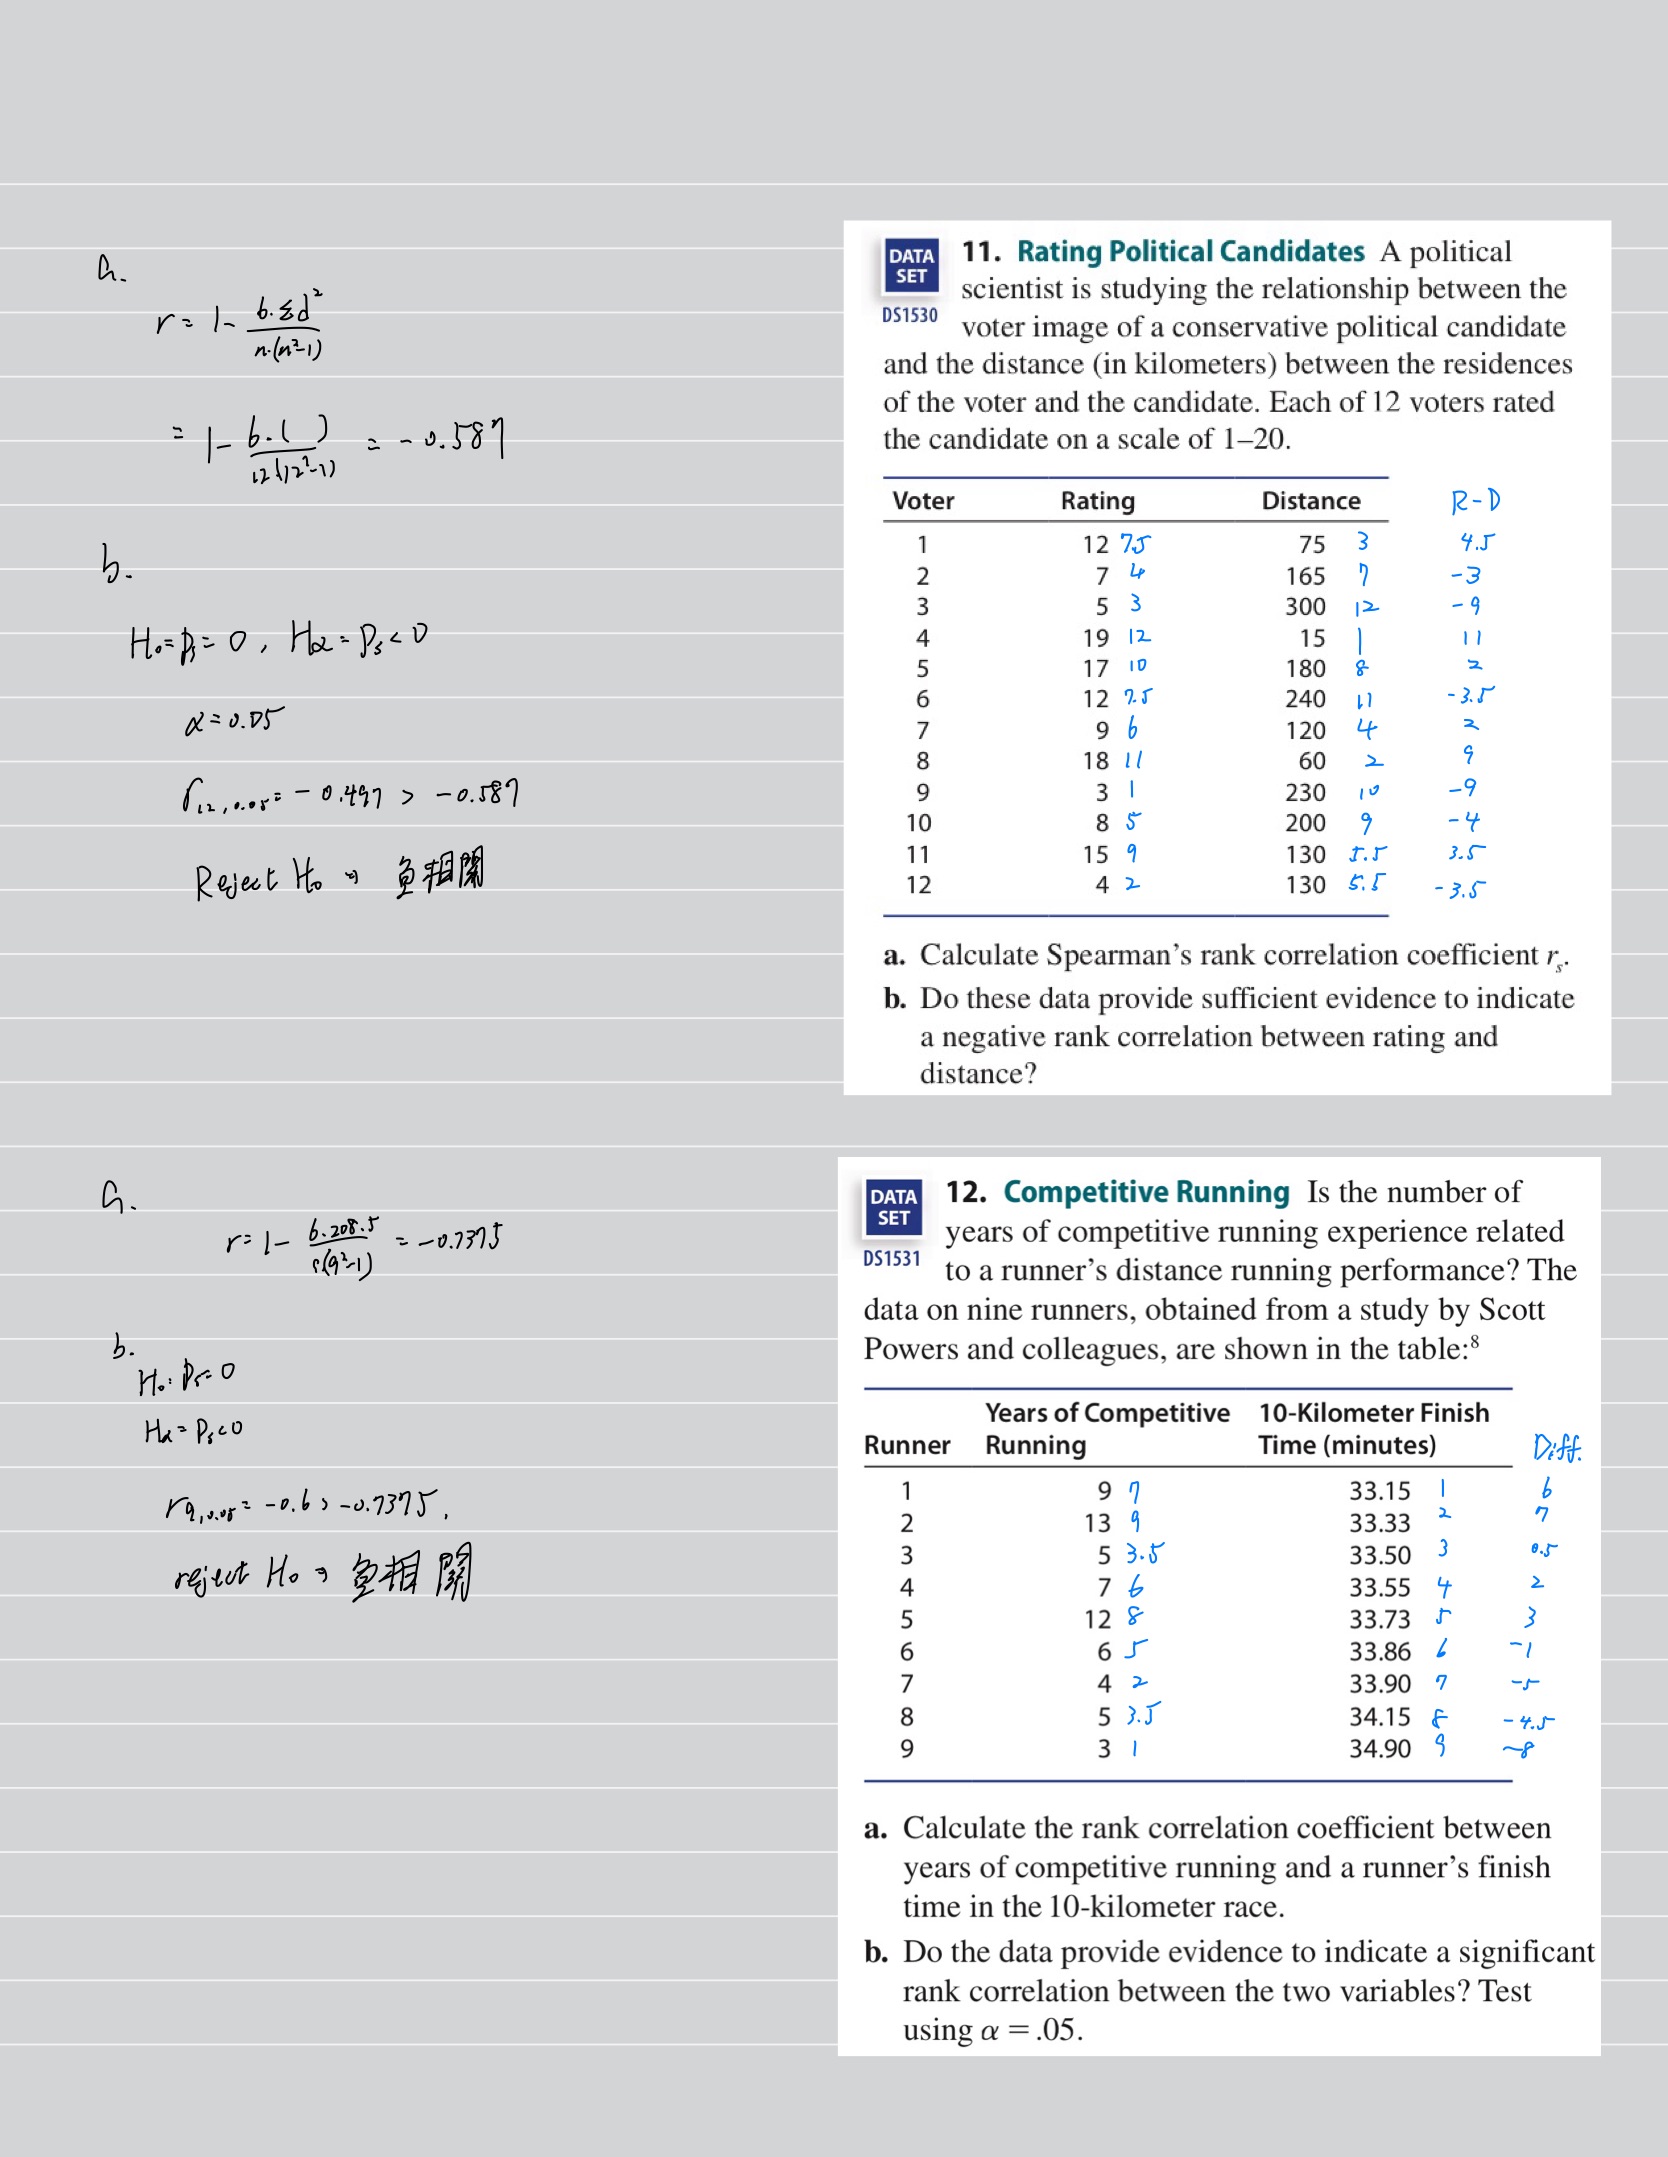 a.
r = 1- 6.Σd² / n.(n²-1)
= 1- 6.( ) / 12(12²-1) = -0.587
b.
H₀=ρₛ=0, Hα=ρₛ<0
α=0.05
r₁₂,₀.₀₅= -0.497 > -0.587
Reject H₀ → 負相關
DATA SET
DS1530
11. Rating Political Candidates A political
scientist is studying the relationship between the
voter image of a conservative political candidate
and the distance (in kilometers) between the residences
of the voter and the candidate. Each of 12 voters rated
the candidate on a scale of 1–20.
Voter Rating Distance R-D
1 12 7.5 75 3 4.5
2 7 4 165 7 -3
3 5 3 300 12 -9
4 19 12 15 1 11
5 17 10 180 8 2
6 12 7.5 240 11 -3.5
7 9 6 120 4 2
8 18 11 60 2 9
9 3 1 230 10 -9
10 8 5 200 9 -4
11 15 9 130 5.5 3.5
12 4 2 130 5.5 -3.5
a. Calculate Spearman's rank correlation coefficient rₛ.
b. Do these data provide sufficient evidence to indicate
a negative rank correlation between rating and
distance?
a.
r= 1- 6.208.5 / 9(9²-1) = -0.7375
b.
H₀: ρₛ=0
Hα= ρₛ<0
r₉,₀.₀₅= -0.6 > -0.7375,
reject H₀ → 負相關
DATA SET
DS1531
12. Competitive Running Is the number of
years of competitive running experience related
to a runner's distance running performance? The
data on nine runners, obtained from a study by Scott
Powers and colleagues, are shown in the table:⁸
Years of Competitive 10-Kilometer Finish
Runner Running Time (minutes) Diff.
1 9 7 33.15 1 6
2 13 9 33.33 2 7
3 5 3.5 33.50 3 0.5
4 7 6 33.55 4 2
5 12 8 33.73 5 3
6 6 5 33.86 6 -1
7 4 2 33.90 7 -5
8 5 3.5 34.15 8 -4.5
9 3 1 34.90 9 -8
a. Calculate the rank correlation coefficient between
years of competitive running and a runner's finish
time in the 10-kilometer race.
b. Do the data provide evidence to indicate a significant
rank correlation between the two variables? Test
using α = .05.